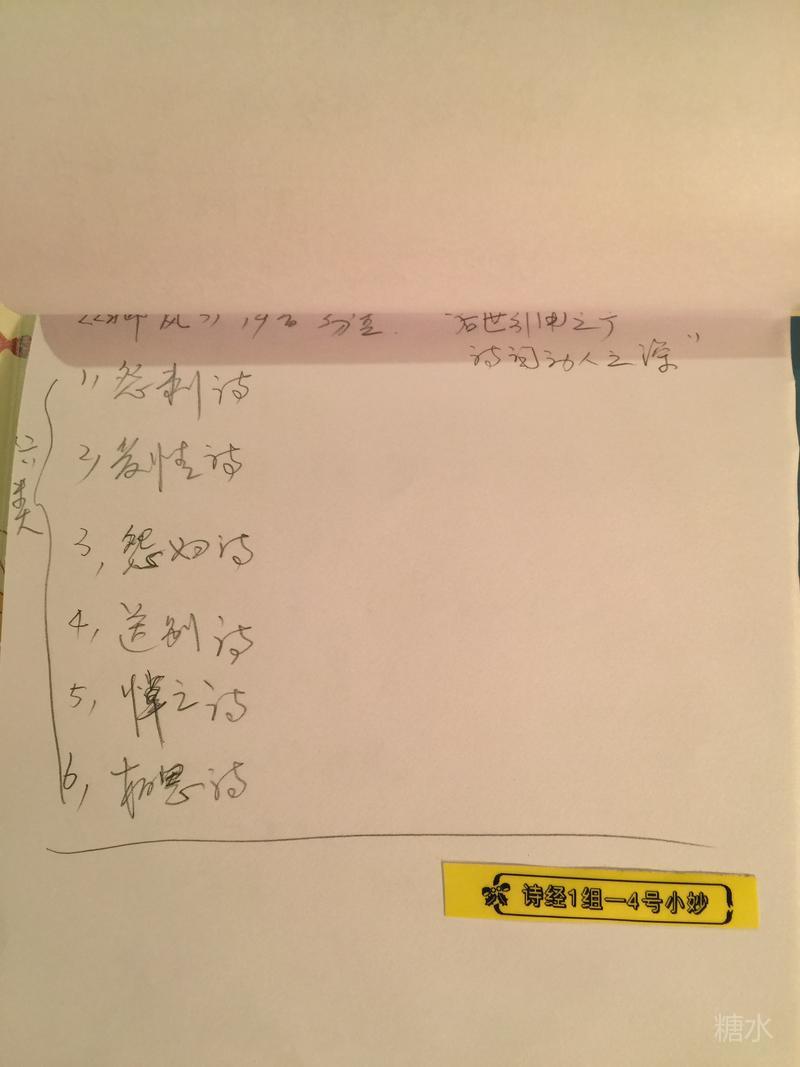 后世引申之广
诗词动人之深”
六类
1, 怨刺诗
2, 爱情诗
3, 怨妇诗
4, 送别诗
5, 悼亡诗
6, 相思诗
诗经1组—4号小妙
糖水